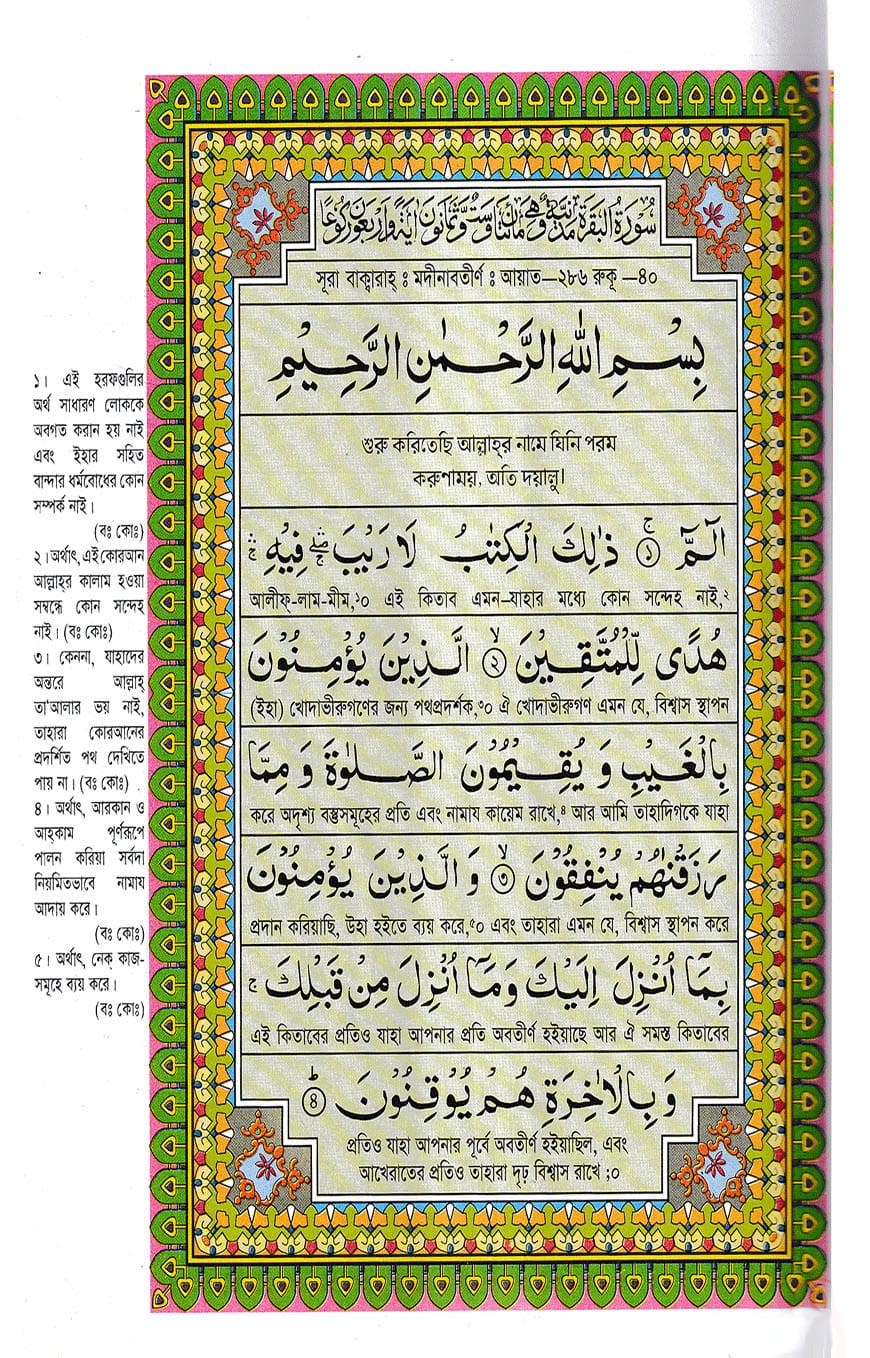 سُوْرَةُ الْبَقَرَةِ مَدَنِيَّةٌ وَّهِيَ مِائَتَانِ وَسِتٌّ وَّثَمَانُوْنَ اٰيَةً وَّاَرْبَعُوْنَ رُكُوْعًا
সূরা বাক্বারাহ্ ঃ মদীনাবতীর্ণ ঃ আয়াত—২৮৬ রুকূ —৪০
بِسْمِ اللهِ الرَّحْمٰنِ الرَّحِيْمِ
শুরু করিতেছি আল্লাহ্‌র নামে যিনি পরম
করুণাময়, অতি দয়ালু।
الٓمّٓ ۚ﴿١﴾ ذٰلِكَ الْكِتٰبُ لَا رَيْبَ ۖۛ فِيْهِ ۛۚ
আলীফ্-লাম-মীম,১০ এই কিতাব এমন–যাহার মধ্যে কোন সন্দেহ নাই,২
هُدًى لِّلْمُتَّقِيْنَ ۙ﴿٢﴾ الَّذِيْنَ يُؤْمِنُوْنَ
(ইহা) খোদাভীরুগণের জন্য পথপ্রদর্শক,৩০ ঐ খোদাভীরুগণ এমন যে, বিশ্বাস স্থাপন
بِالْغَيْبِ وَ يُقِيْمُوْنَ الصَّلٰوةَ وَ مِمَّا
করে অদৃশ্য বস্তুসমূহের প্রতি এবং নামায কায়েম রাখে,৪ আর আমি তাহাদিগকে যাহা
رَزَقْنٰهُمْ يُنْفِقُوْنَ ۙ﴿٣﴾ وَ الَّذِيْنَ يُؤْمِنُوْنَ
প্রদান করিয়াছি, উহা হইতে ব্যয় করে,৫০ এবং তাহারা এমন যে, বিশ্বাস স্থাপন করে
بِمَآ اُنْزِلَ اِلَيْكَ وَمَآ اُنْزِلَ مِنْ قَبْلِكَ ۚ
এই কিতাবের প্রতিও যাহা আপনার প্রতি অবতীর্ণ হইয়াছে আর ঐ সমস্ত কিতাবের
وَبِالْاٰخِرَةِ هُمْ يُوْقِنُوْنَ ؕ﴿٤﴾
প্রতিও যাহা আপনার পূর্বে অবতীর্ণ হইয়াছিল, এবং
আখেরাতের প্রতিও তাহারা দৃঢ় বিশ্বাস রাখে ;০
১। এই হরফগুলির
অর্থ সাধারণ লোককে
অবগত করান হয় নাই
এবং ইহার সহিত
বান্দার ধর্মবোধের কোন
সম্পর্ক নাই।
(বঃ কোঃ)
২। অর্থাৎ, এই কোরআন
আল্লাহ্‌র কালাম হওয়া
সম্বন্ধে কোন সন্দেহ
নাই। (বঃ কোঃ)
৩। কেননা, যাহাদের
অন্তরে আল্লাহ্
তা'আলার ভয় নাই,
তাহারা কোরআনের
প্রদর্শিত পথ দেখিতে
পায় না। (বঃ কোঃ)
৪। অর্থাৎ, আরকান ও
আহ্কাম পূর্ণরূপে
পালন করিয়া সর্বদা
নিয়মিতভাবে নামায
আদায় করে।
(বঃ কোঃ)
৫। অর্থাৎ, নেক্ কাজ-
সমূহে ব্যয় করে।
(বঃ কোঃ)